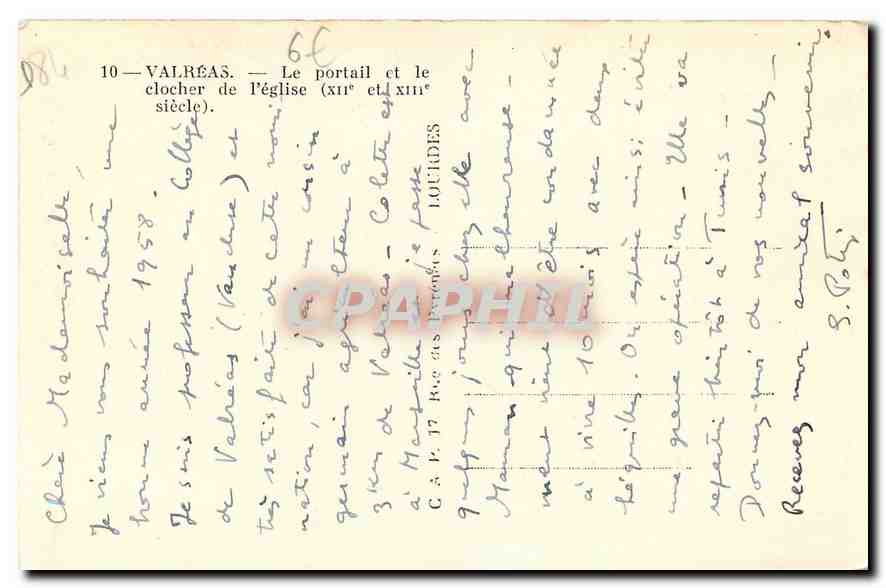 6€
10 — VALRÉAS. — Le portail et le
clocher de l'église (XIIe et XIIIe
siècle).
C & P. 17 Rue des Pyrénées - LOURDES
CPAPHIL
Chère Mademoiselle
Je viens vous souhaiter une
bonne année 1958.
Je suis professeur au Collège
de Valréas (Vaucluse) et
très satisfaite de cette nomi-
nation, car j'ai un cousin
germain agriculteur à
3 km de Valréas - Colette est
à Marseille et je passe
quelques jours chez elle avec
Maman qui est malheureuse -
ment vient d'être condamnée
à vivre 10 mois avec deux
béquilles. On espère ainsi éviter
une grave opération - Elle va
repartir bientôt à Tunis -
Donnez-moi de vos nouvelles -
Recevez mon amical souvenir.